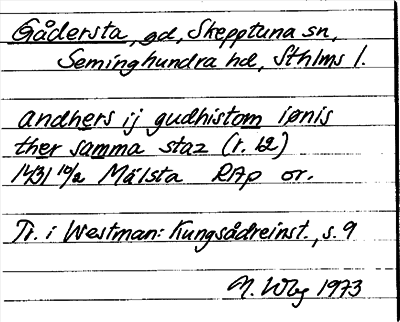 Gådersta, gd, Skepptuna sn,
Seminghundra hd, Sthlms l.
andhers ij gudhistom iønis
ther samma staz (r. 12)
1431 10/2 Mälsta RAp or.
Tr. i Westman: Kungsådreinst., s. 9
N. Wbg 1973